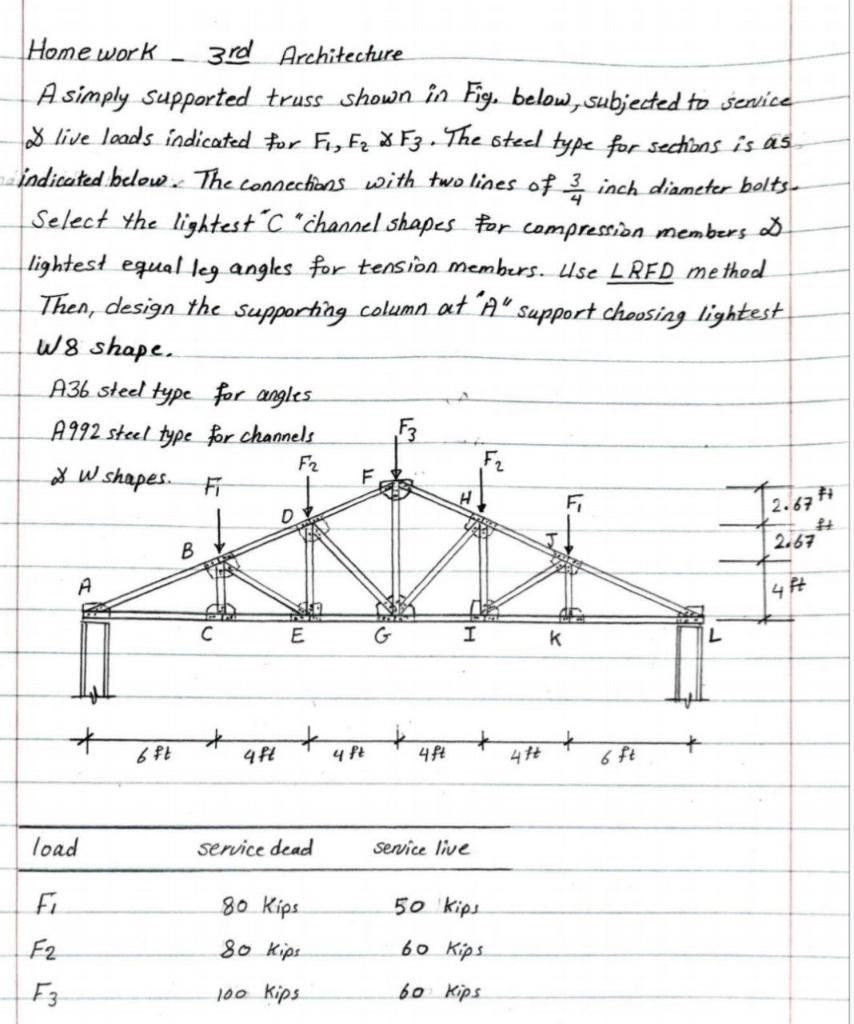 Homework - 3rd Architecture
A simply supported truss shown in Fig. below, subjected to service
& live loads indicated for F1, F2 & F3. The steel type for sections is as
indicated below. The connections with two lines of 3/4 inch diameter bolts.
Select the lightest "C" channel shapes for compression members &
lightest equal leg angles for tension members. Use LRFD method
Then, design the supporting column at "A" support choosing lightest
W8 shape.
A36 steel type for angles
A992 steel type for channels
& W shapes.
F3
F2
F2
F1
F1
F
H
D
J
B
A
2.67 ft
2.67 ft
4 ft
C E G I K L
6 ft 4 ft 4 ft 4 ft 4 ft 6 ft
load service dead service live
F1 80 Kips 50 kips
F2 80 Kips 60 Kips
F3 100 Kips 60 Kips